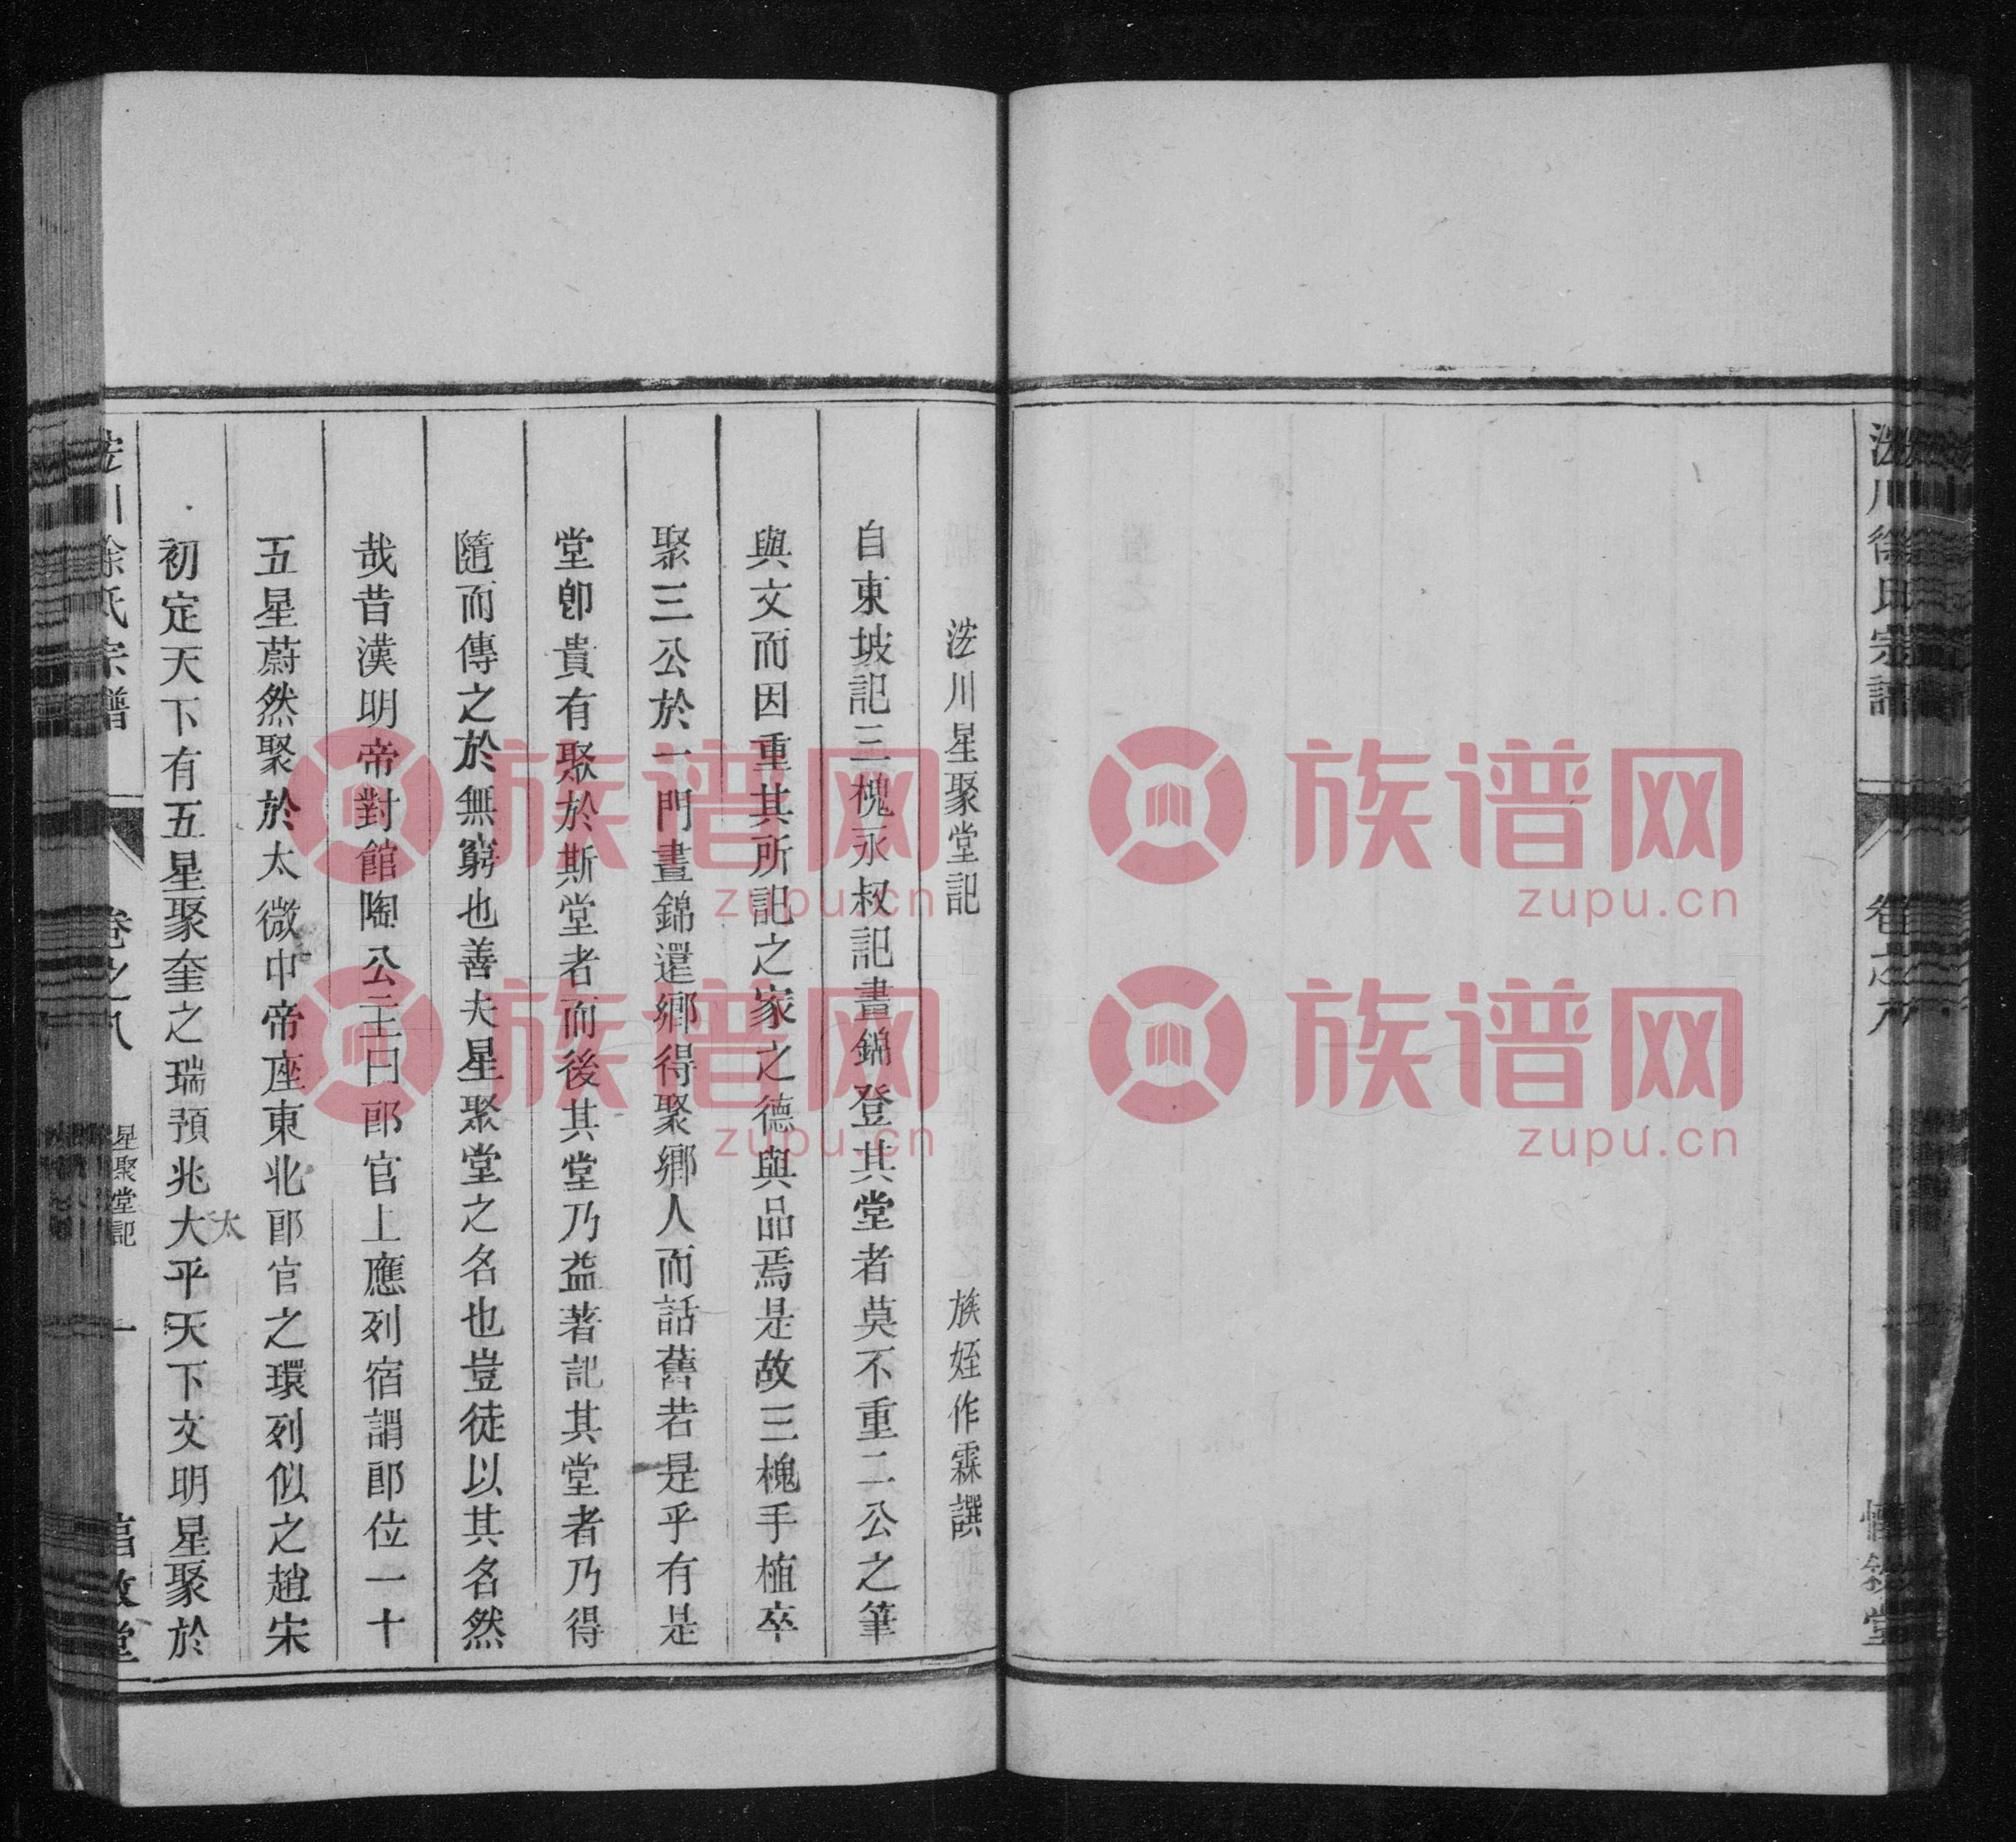 浤川徐氏宗譜
卷之八
惇敘堂
浤川星聚堂記
族姪作霖譔
自東坡記三槐永叔記晝錦登其堂者莫不重二公之筆
與文而因重其所記之家之德與品焉是故三槐手植卒
聚三公於一門晝錦還鄉得聚鄉人而話舊若是乎有是
堂卽貴有聚於斯堂者而後其堂乃益著記其堂者乃得
隨而傳之於無窮也善夫星聚堂之名也豈徒以其名然
哉昔漢明帝對館陶公主曰郎官上應列宿謂郎位一十
五星蔚然聚於太微中帝座東北郎官之環列似之趙宋
初定天下有五星聚奎之瑞預兆大平天下文明星聚於
太
浤川徐氏宗譜
卷之八
星聚堂記
一
惇敘堂
族谱网
zupu.cn
族谱网
zupu.cn
族谱网
zupu.cn
族谱网
zupu.cn